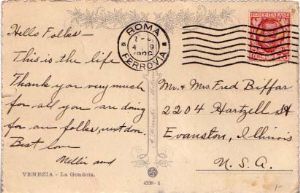 Hello Folks -
This is the life
Thank you very much
for all you are doing
for our folks, not
Best love
Nellie and
VENEZIA - La Gondola.
ROMA
FERROVIA
Mr. & Mrs Fred Biffar
2204 Hartzell St
Evanston, Illinois
U.S.A.